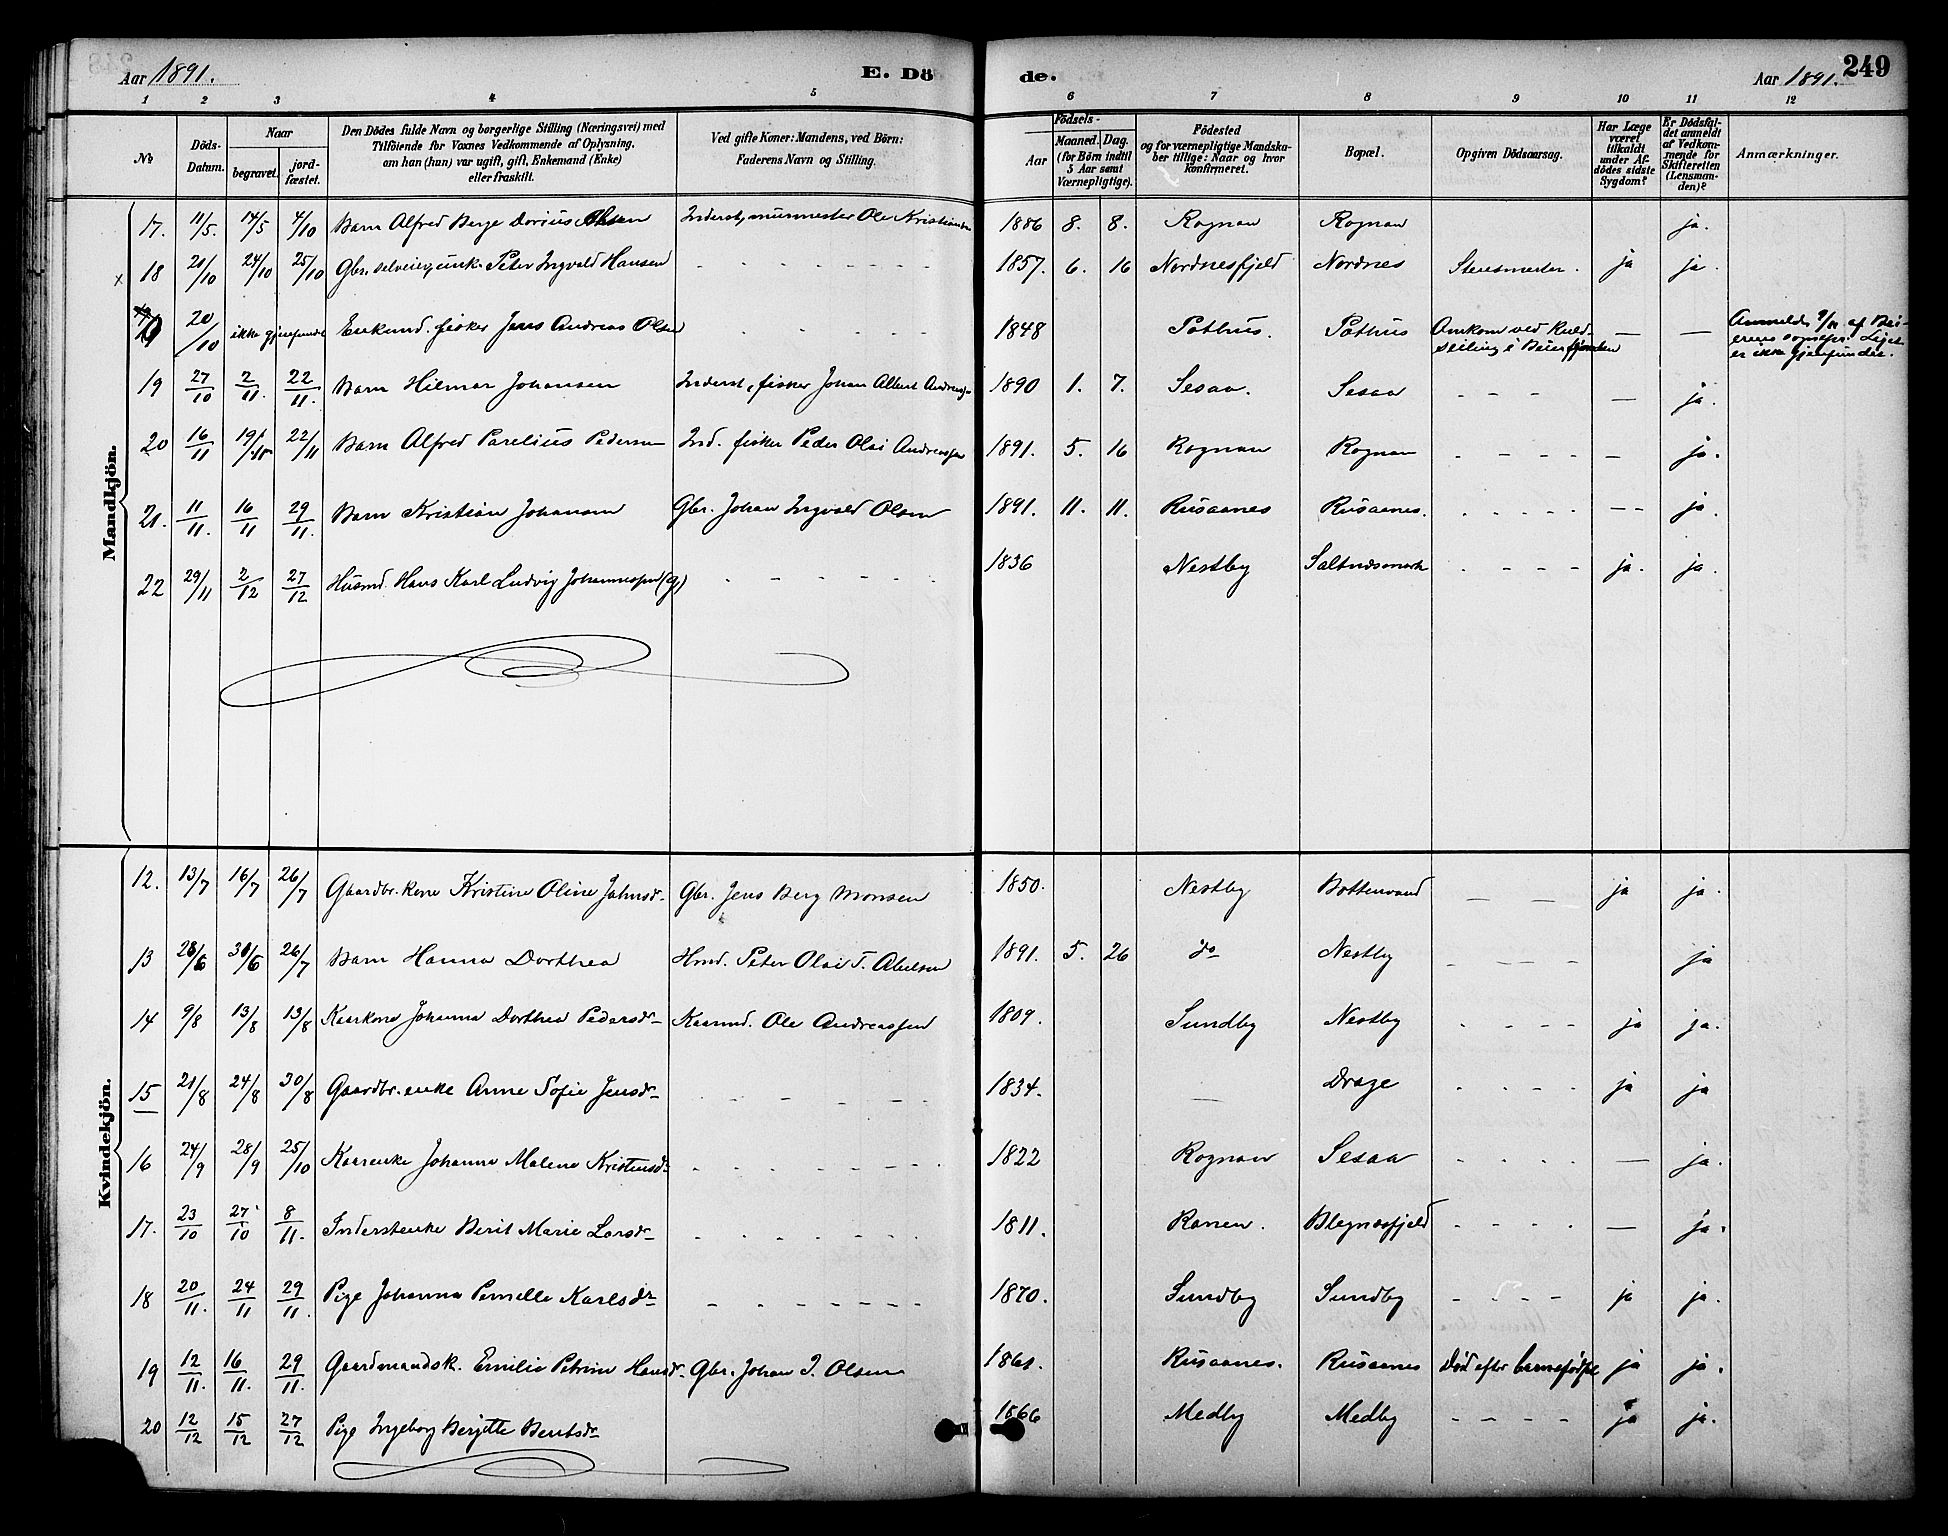 Aar 1891. E. Dö de. Aar 1891. 249
1 2 3 4 5 6 7 8 9 10 11 12
No Döds-Datum. Naar begravet. jordfæstet. Den Dödes fulde Navn og borgerlige Stilling (Næringsvei) med Tilföiende for Voxnes Vedkommende af Oplysning, om han (hun) var ugift, gift, Enkemand (Enke) eller fraskilt. Ved gifte Koner: Mandens, ved Börn: Faderens Navn og Stilling. Födsels- Aar Maaned. Dag. (for Börn indtil 5 Aar samt Værnepligtige). Födested og for værnepligtige Mandskaber tillige: Naar og hvor Konfirmeret. Bopæl. Opgiven Dödsaarsag. Har Læge været tilkaldt under Afdödes sidste Sygdom? Er Dödsfaldet anmeldt af Vedkommende for Skifteretten (Lensmanden)? Anmærkninger.
Mandkjön.
17. 11/5. 14/5 4/10 Barn Alfred Berge Dorius Olsen Inderst, murmester Ole Kristiansen 1886 8. 8. Rognan Rognan ja.
x 18 21/10 24/10 25/10 Gbr. selveier, unk. Peter Ingvald Hansen - - - - 1857. 6. 16 Nordnesfjeld Nordnes ja ja.
20/10 ikke gjenfundet Enkemd. fisker Jens Andreas Olsen - - - - 1848 Pothus. Pothus Omkom ved Kuldseiling i Beierfjorden — — Anmeldt 9/11 af Beierens sognepr. Liget er ikke gjenfundet.
19 27/10 2/11. 22/11. Barn Hilmar Johansen Inderst, fisker Johan Albert Andreas. 1890 1. 7. Sesaa. Sesaa - - - — ja.
20 16/11 19/11 22/11 Barn Alfred Parelius Pedersen Ind. fisker Peder Olai Andreassen 1891. 5. 16 Rognan Rognan - - - - - ja.
21. 11/11. 16/11 29/11. Barn Kristian Johansen Gbr. Johan Ingvald Olsen 1891. 11. 11. Rusaanes Rusaanes. - - - - - -- ja.
22 29/11 2/12 27/12 Husmd. Hans Karl Ludvig Johannessen (g) - - - - 1836 Nestby Saltnæsmark - - - - ja. ja.
Kvindekjön.
12. 13/7 16/7 26/7 Gaardbr. kone Kristine Oline Jahnsdr. Gbr. Jens Berg Monsen 1850. Nestby Bottenvand — — ja ja.
13 28/6 30/6 26/7 Barn Hanna Dorthea Hmd. Peter Olai T. Abelsen 1891. 5. 26 do Nestby - - - - ja
14 9/8 13/8 13/8 Kaarkone Johanna Dorthea Pedersdr. Kaarmd. Ole Andreassen 1809. Sundby Nestby - - - - ja ja.
15 21/8 24/8 30/8 Gaardbr. enke Anne Sofie Jensdr. - - - - 1834. — Drage - - - - ja ja
16 24/9 28/9 25/10 Kaarenke Johanna Malena Kristensdr. - - - - 1822 Rognan Sesaa - - - - — ja.
17. 23/10 27/10 8/11. Inderstenke Berit Marie Larsdr. - - - - 1811. Ranen. Blegnæsfjeld - - - - — ja.
18 20/11. 24/11 29/11. Pige Johanna Pernelle Karlsdr. - - - - 1870. Sundby Sundby - - - - ja ja.
19 12/11. 16/11. 29/11. Gaardmandsk. Emilie Petrine Hansdr. Gbr. Johan I. Olsen 1861. Rusaanes. Rusaanes Död efter barnefödsel ja ja.
20 12/12 15/12 27/12 Pige Ingeborg Bergitte Bentsdr. 1866 Medby Medby - - - - ja ja.